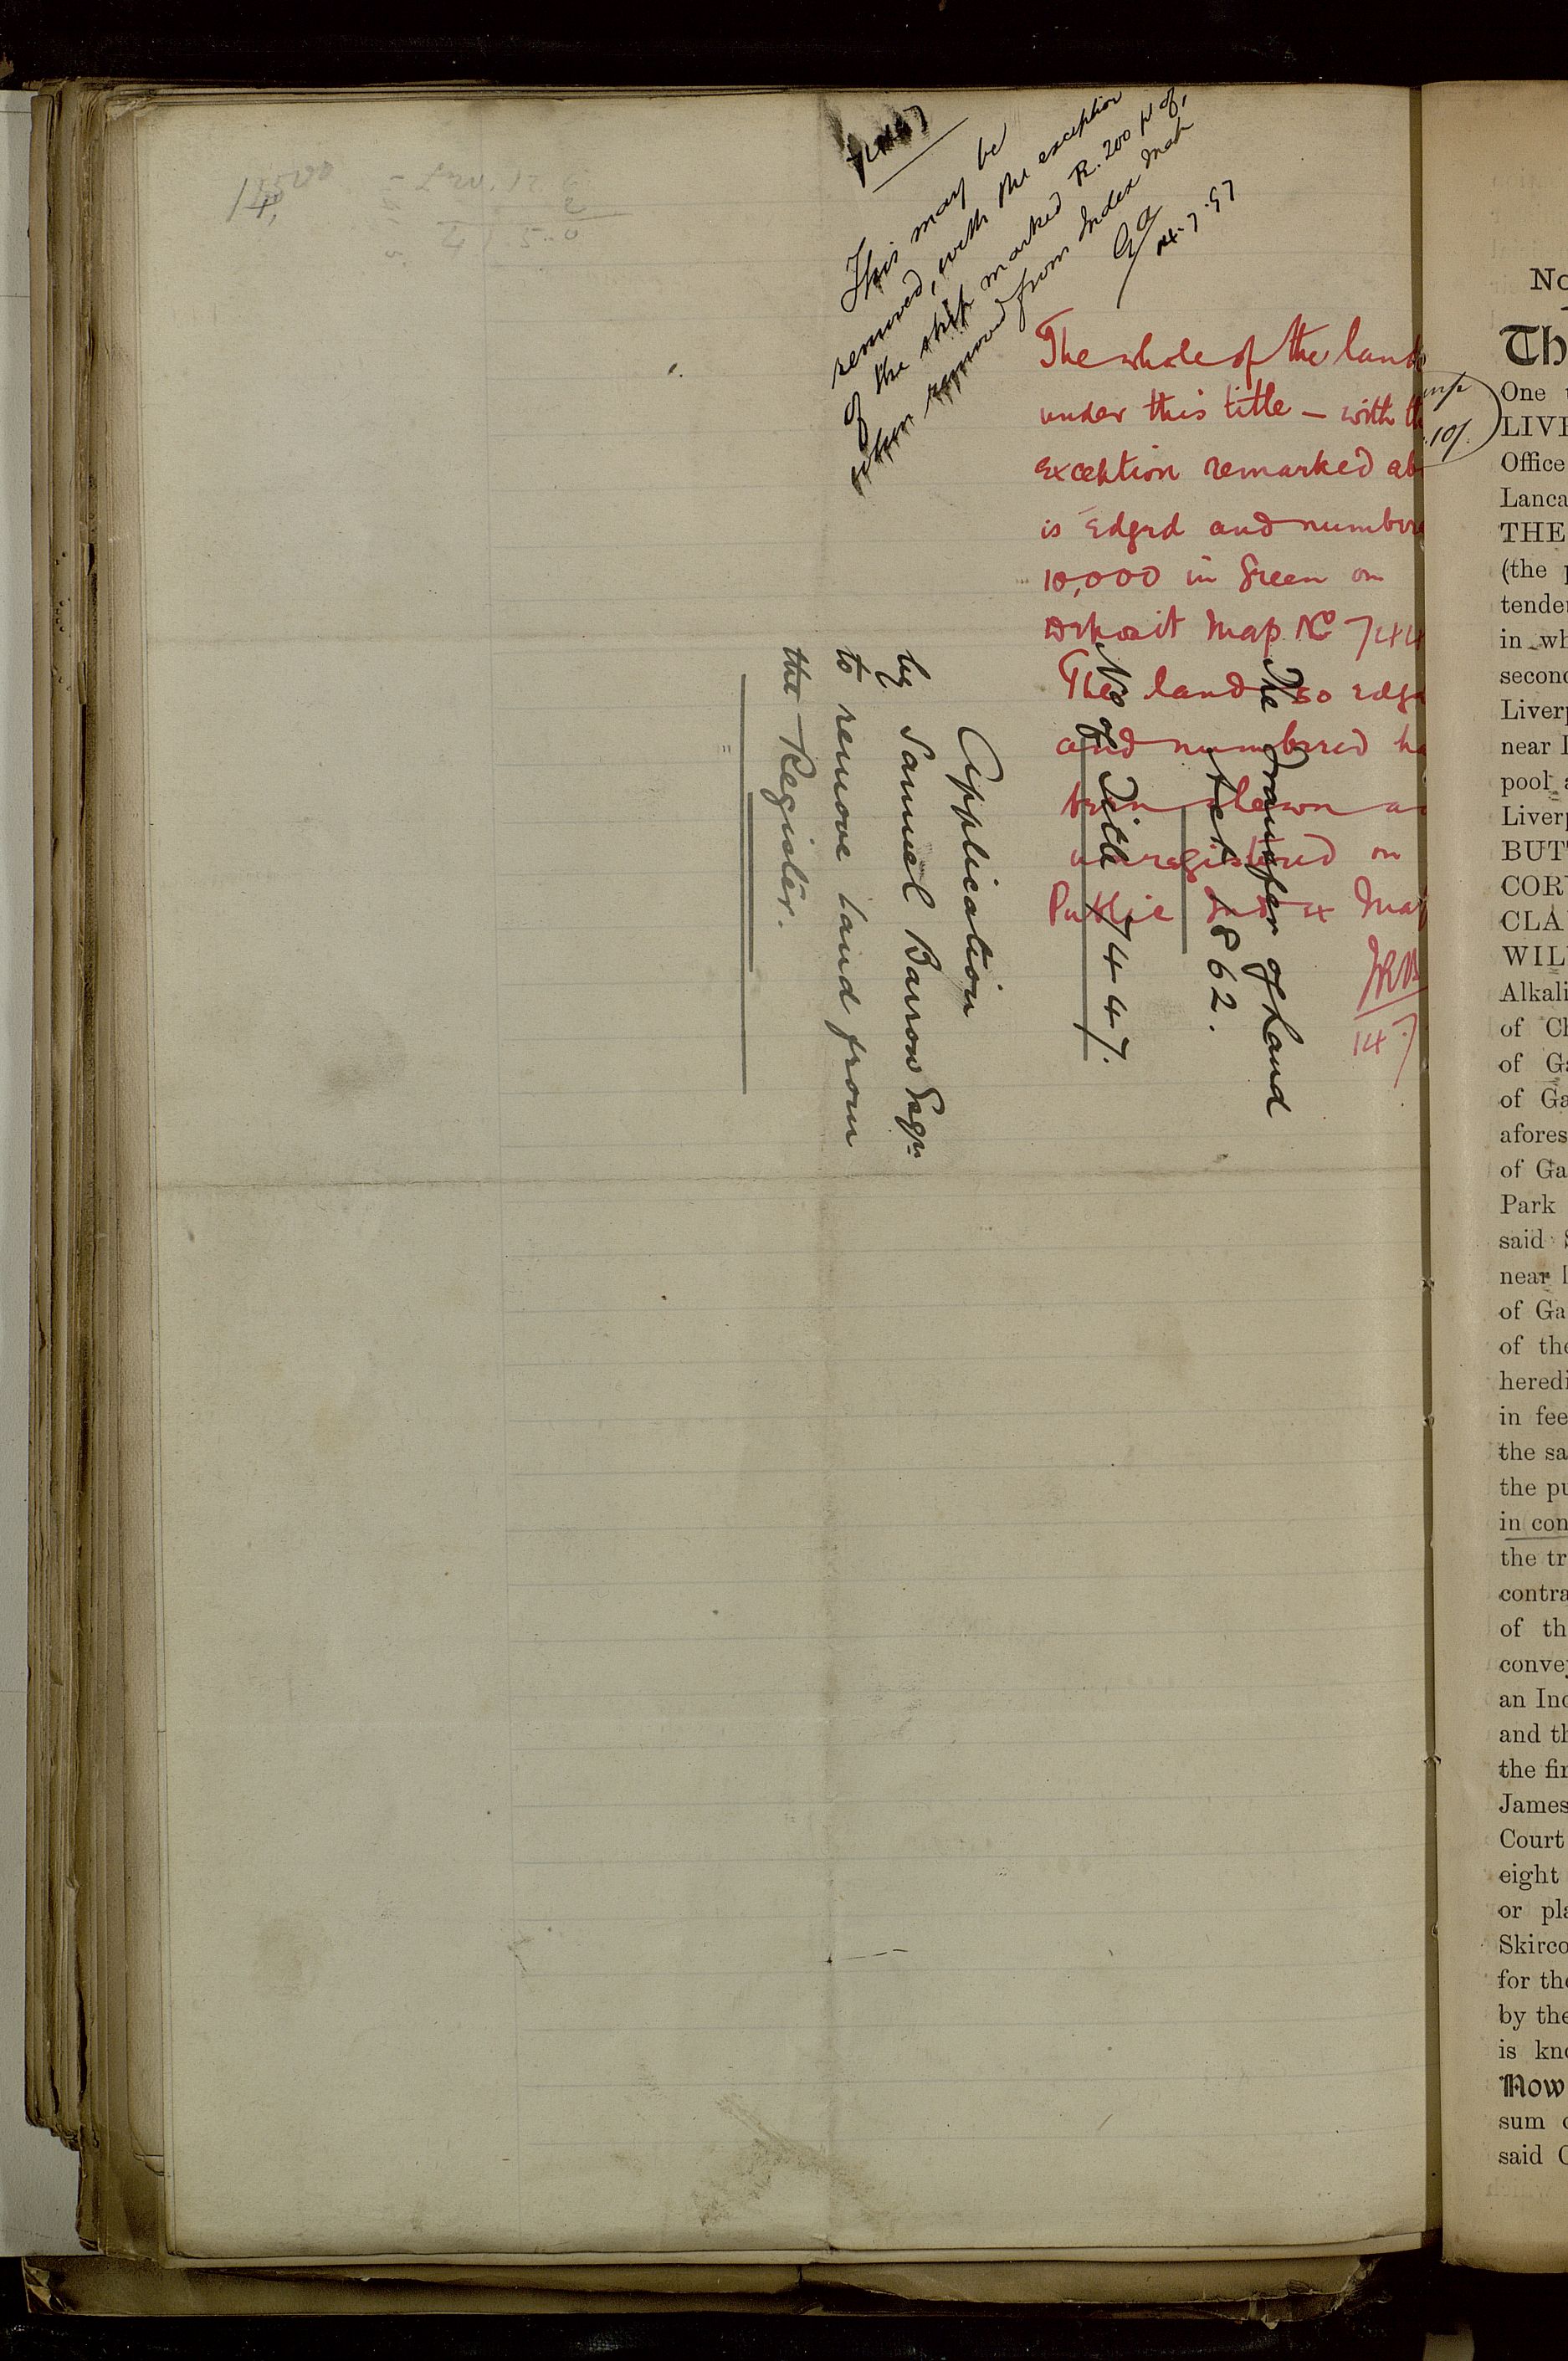 7447
This may be
removed, with the exception
of the strip marked R. 200 pt of,
when removed from Index Map
14.7.97
The whole of the land
under this title – with th
exception remarked ab
is Edged and numbere
10,000 in Green on
Deposit Map No 744
The land so edge
and numbered ha
been shewn as
unregistered on
Public Index Map
14 7
The Transfer of Land
Act 1862.
No of Title 7447.
Application
by Samuel Barrow Esqr.
to remove land from
the Register.
10/.
No
Th
One
LIVE
Office
Lanca
THE
(the p
tender
in wh
second
Liverp
near L
pool a
Liverp
BUT
COR
CLA
WIL
Alkali
of Ch
of Ga
of Ga
afores
of Ga
Park
said S
near
of Ga
of the
heredi
in fee
the sa
the pu
in con
the tr
contra
of th
convey
an Ind
and th
the fir
James
Court
eight
or pla
Skirco
for the
by the
is kno
Now
sum o
said C